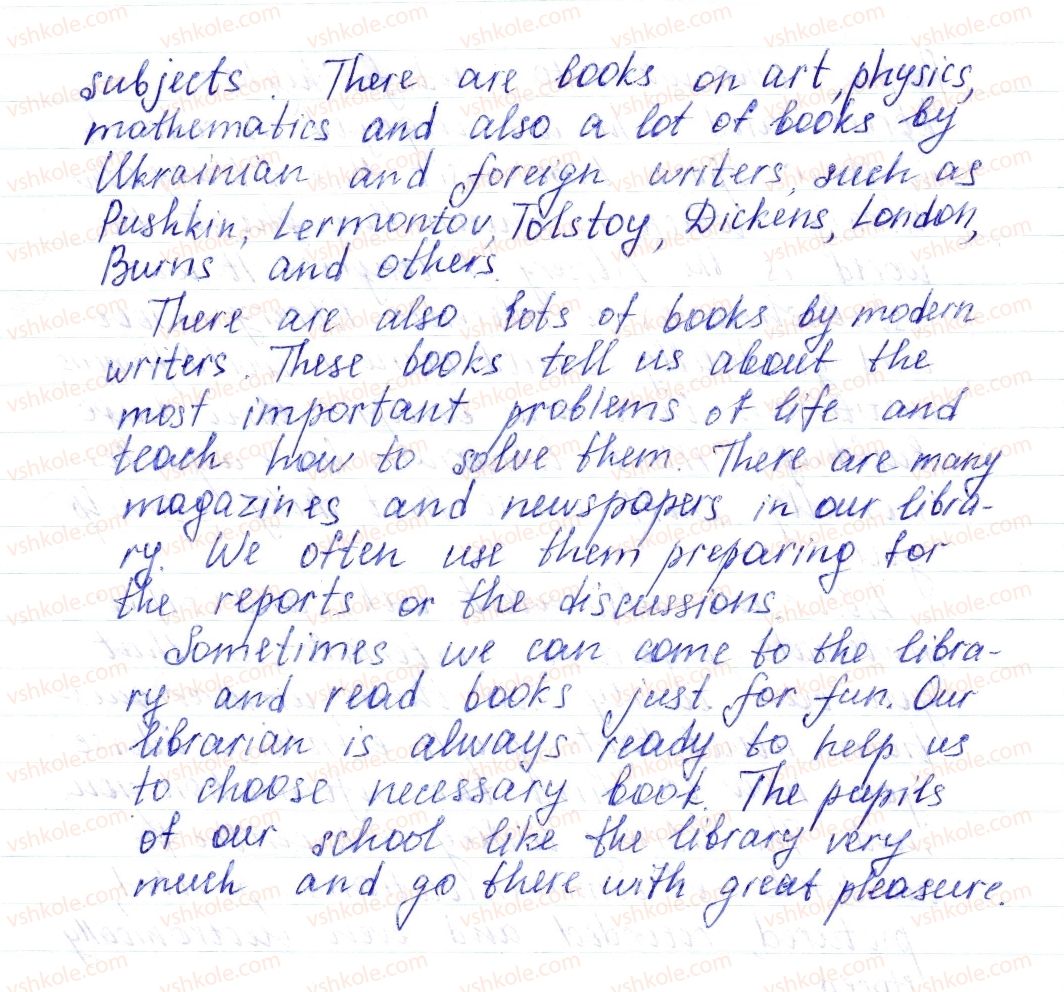 subjects. There are books on art, physics,
mathematics and also a lot of books by
Ukrainian and foreign writers, such as
Pushkin, Lermontov, Tolstoy, Dickens, London,
Burns and others.
There are also lots of books by modern
writers. These books tell us about the
most important problems of life and
teach how to solve them. There are many
magazines and newspapers in our libra-
ry. We often use them preparing for
the reports or the discussions.
Sometimes we can come to the libra-
ry and read books just for fun. Our
librarian is always ready to help us
to choose necessary book. The pupils
of our school like the library very
much and go there with great pleasure.